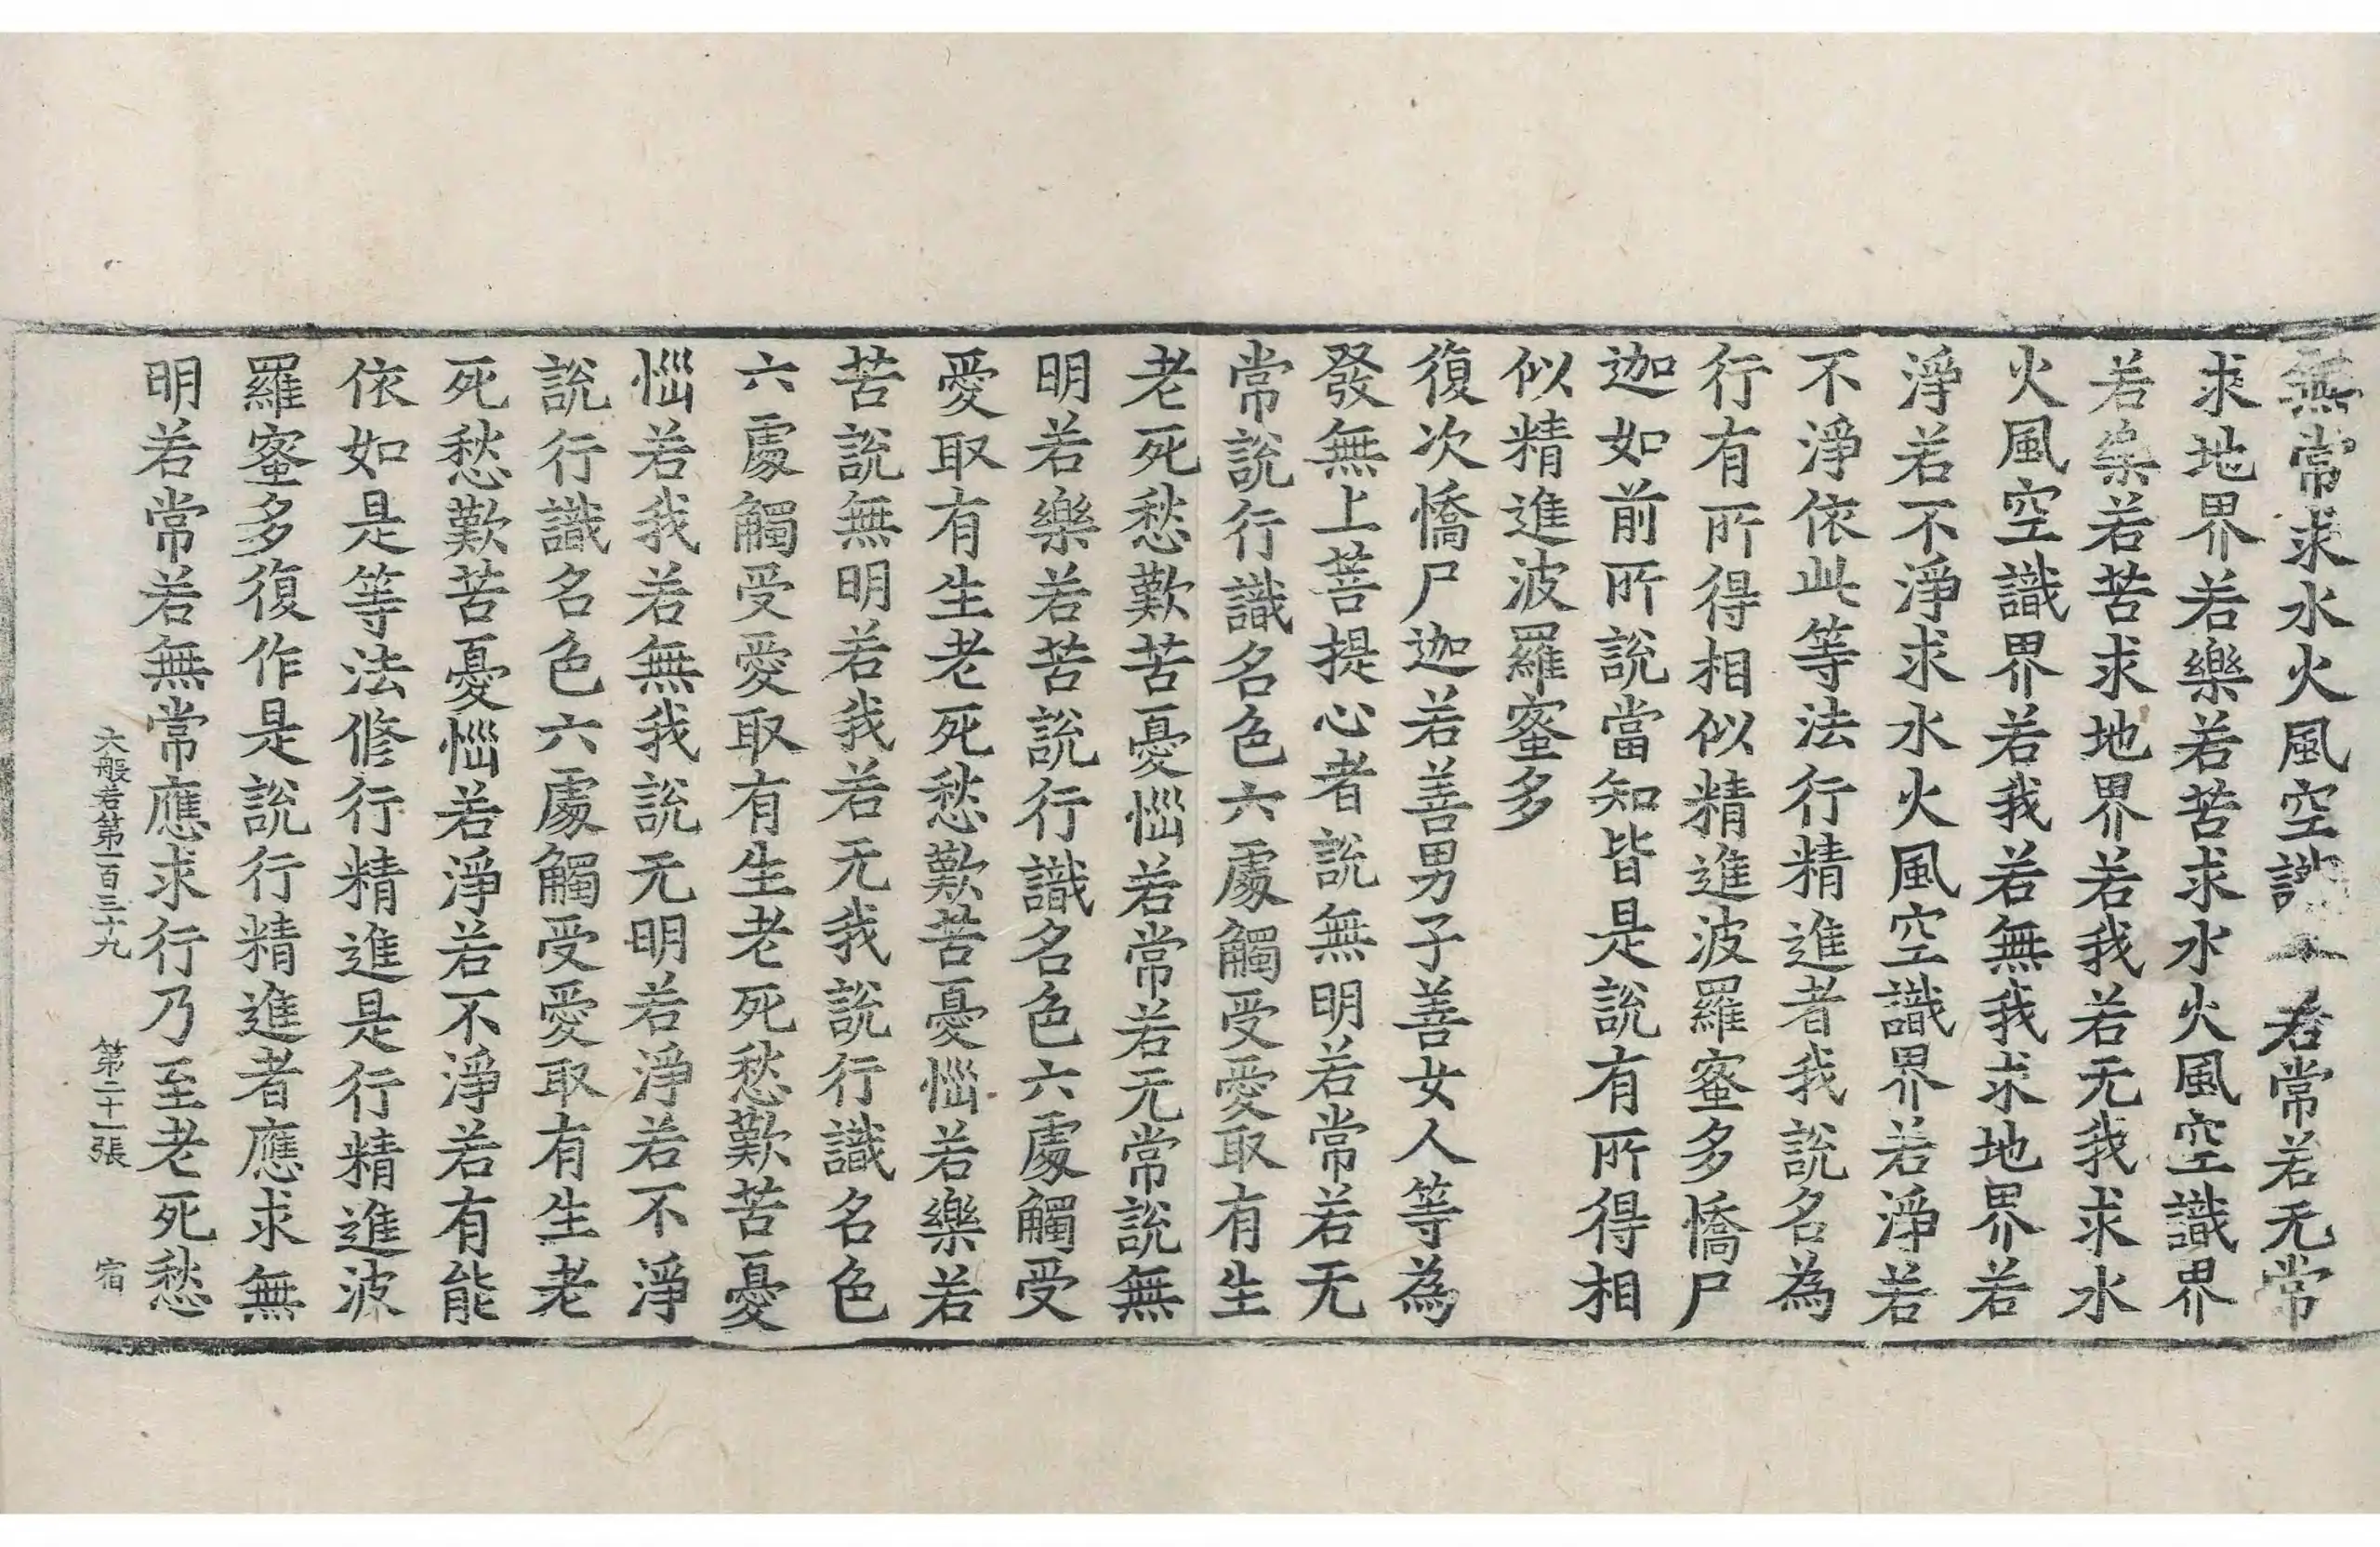 無常求水火風空識界若常若无常
求地界若樂若苦求水火風空識界
若樂若苦求地界若我若无我求水
火風空識界若我若無我求地界若
淨若不淨求水火風空識界若淨若
不淨依此等法行精進者我說名為
行有所得相似精進波羅蜜多憍尸
迦如前所說當知皆是說有所得相
似精進波羅蜜多
復次憍尸迦若善男子善女人等為
發無上菩提心者說無明若常若无
常說行識名色六處觸受愛取有生
老死愁歎苦憂惱若常若无常說無
明若樂若苦說行識名色六處觸受
愛取有生老死愁歎苦憂惱若樂若
苦說無明若我若无我說行識名色
六處觸受愛取有生老死愁歎苦憂
惱若我若無我說无明若淨若不淨
說行識名色六處觸受愛取有生老
死愁歎苦憂惱若淨若不淨若有能
依如是等法修行精進是行精進波
羅蜜多復作是說行精進者應求無
明若常若無常應求行乃至老死愁
大般若第一百三十九 第二十一張 宿